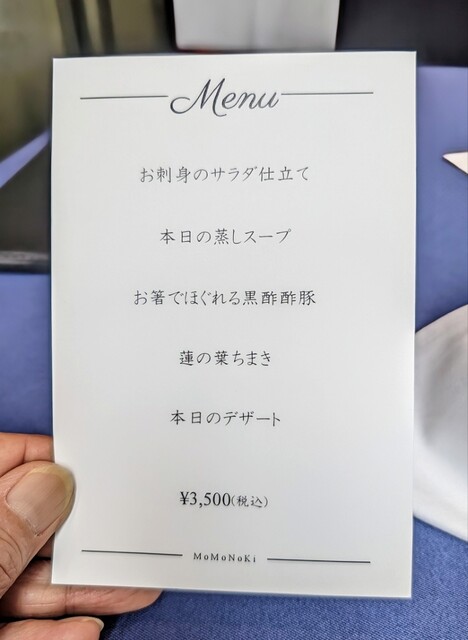 Menu
お刺身のサラダ仕立て
本日の蒸しスープ
お箸でほぐれる黒酢酢豚
蓮の葉ちまき
本日のデザート
¥3,500(税込)
MoMoNoKi